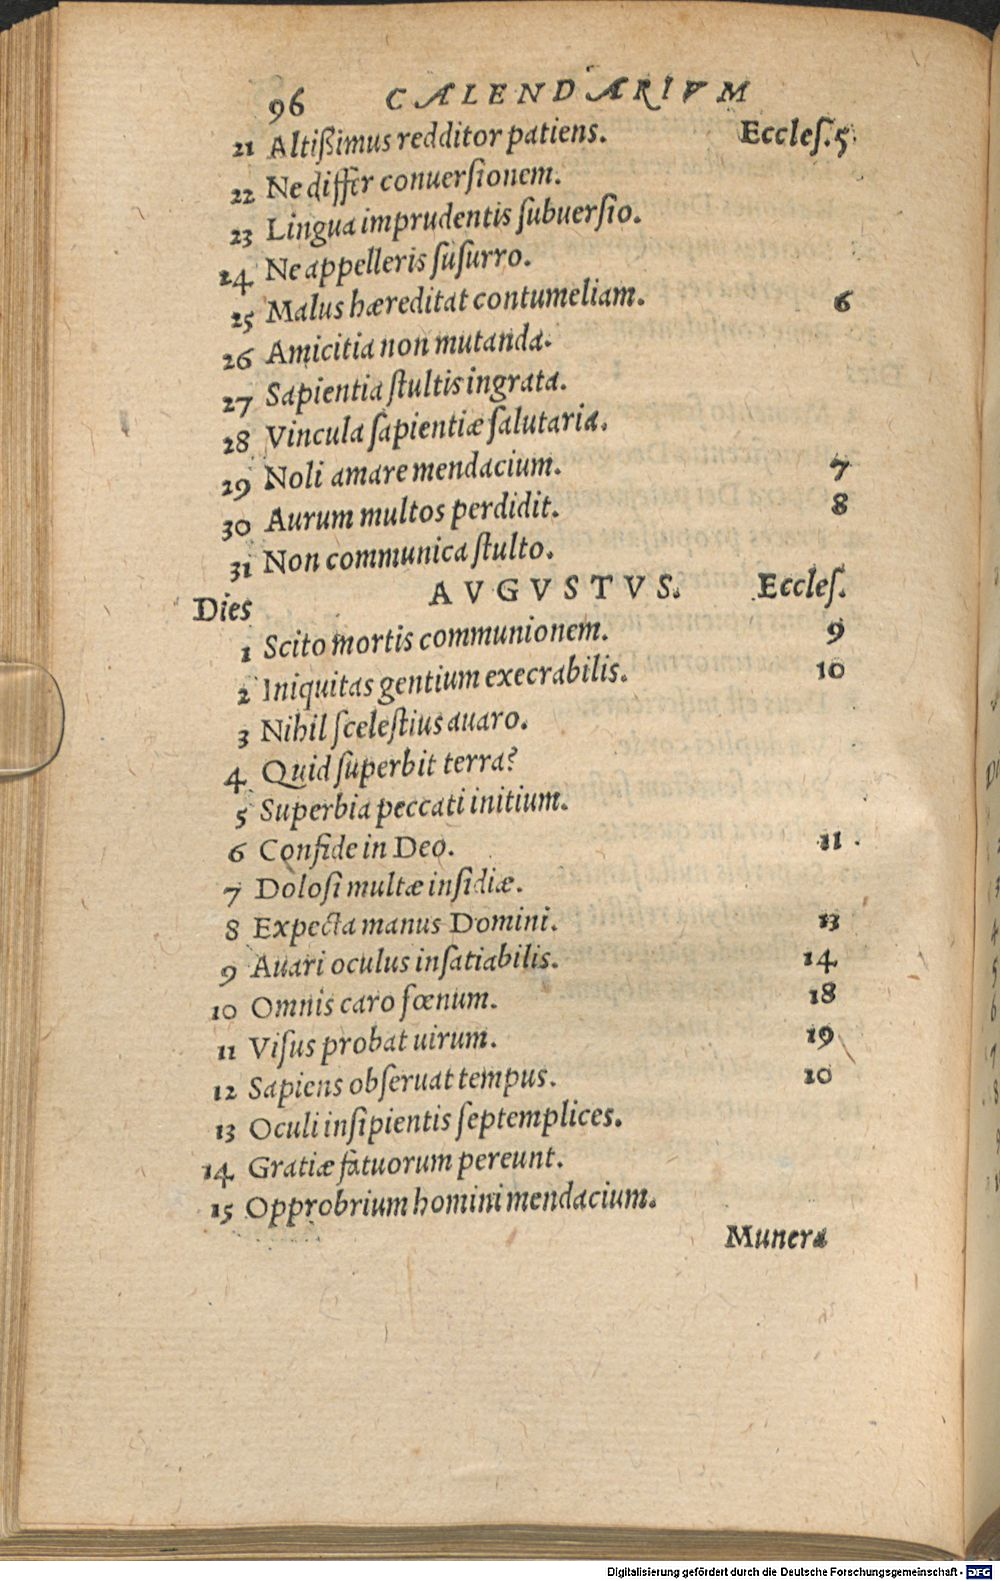 96 CALENDARIVM
21 Altißimus redditor patiens. Eccleſ. 5.
22 Ne differ conuerſionem.
23 Lingua imprudentis ſubuerſio.
24 Ne appelleris ſuſurro.
25 Malus hæreditat contumeliam. 6
26 Amicitia non mutanda.
27 Sapientia ſtultis ingrata.
28 Vincula ſapientiæ ſalutaria.
29 Noli amare mendacium. 7
30 Aurum multos perdidit. 8
31 Non communica ſtulto.
Dies AVGVSTVS. Eccleſ.
1 Scito mortis communionem. 9
2 Iniquitas gentium execrabilis. 10
3 Nihil ſceleſtius auaro.
4 Quid ſuperbit terra?
5 Superbia peccati initium.
6 Confide in Deo. 11
7 Doloſi multæ inſidiæ.
8 Expecta manus Domini. 13
9 Auari oculus inſatiabilis. 14
10 Omnis caro fœnum. 18
11 Viſus probat uirum. 19
12 Sapiens obſeruat tempus. 10
13 Oculi inſipientis ſeptemplices.
14 Gratiæ fatuorum pereunt.
15 Opprobrium homini mendacium.
Munera
Digitalisierung gefördert durch die Deutsche Forschungsgemeinschaft - DFG